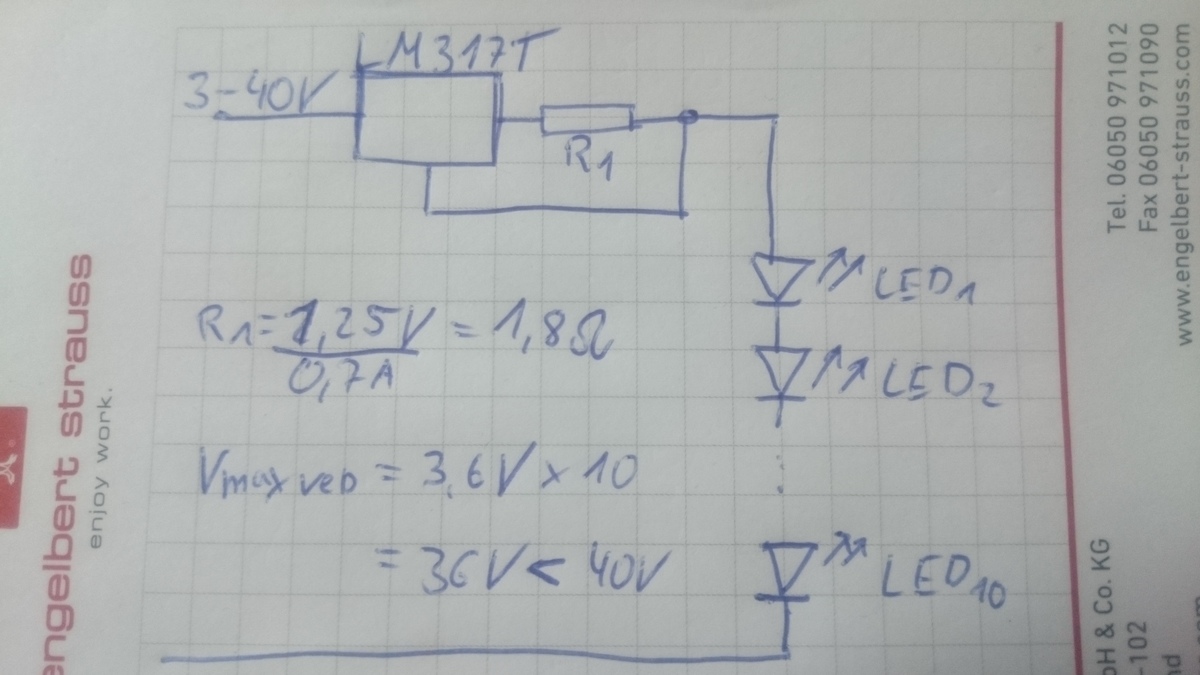 LM317T
3-40V
R1
LED1
R1 = 1,25V / 0,7A = 1,8Ω
LED2
Vmax LED = 3,6V x 10
= 36V < 40V
LED10
engelbert strauss
enjoy work.
Tel. 06050 971012
Fax 06050 971090
www.engelbert-strauss.com
bH & Co. KG
-102
nd